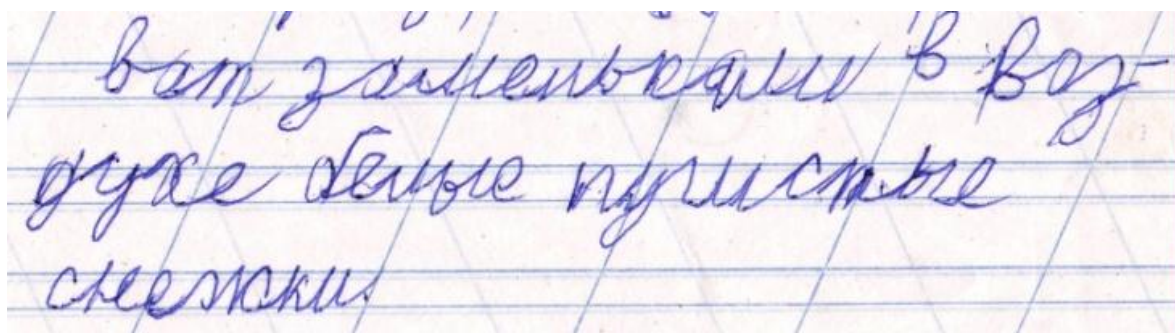 вот заменькали в воз-
духе белые пушистые
снежки.